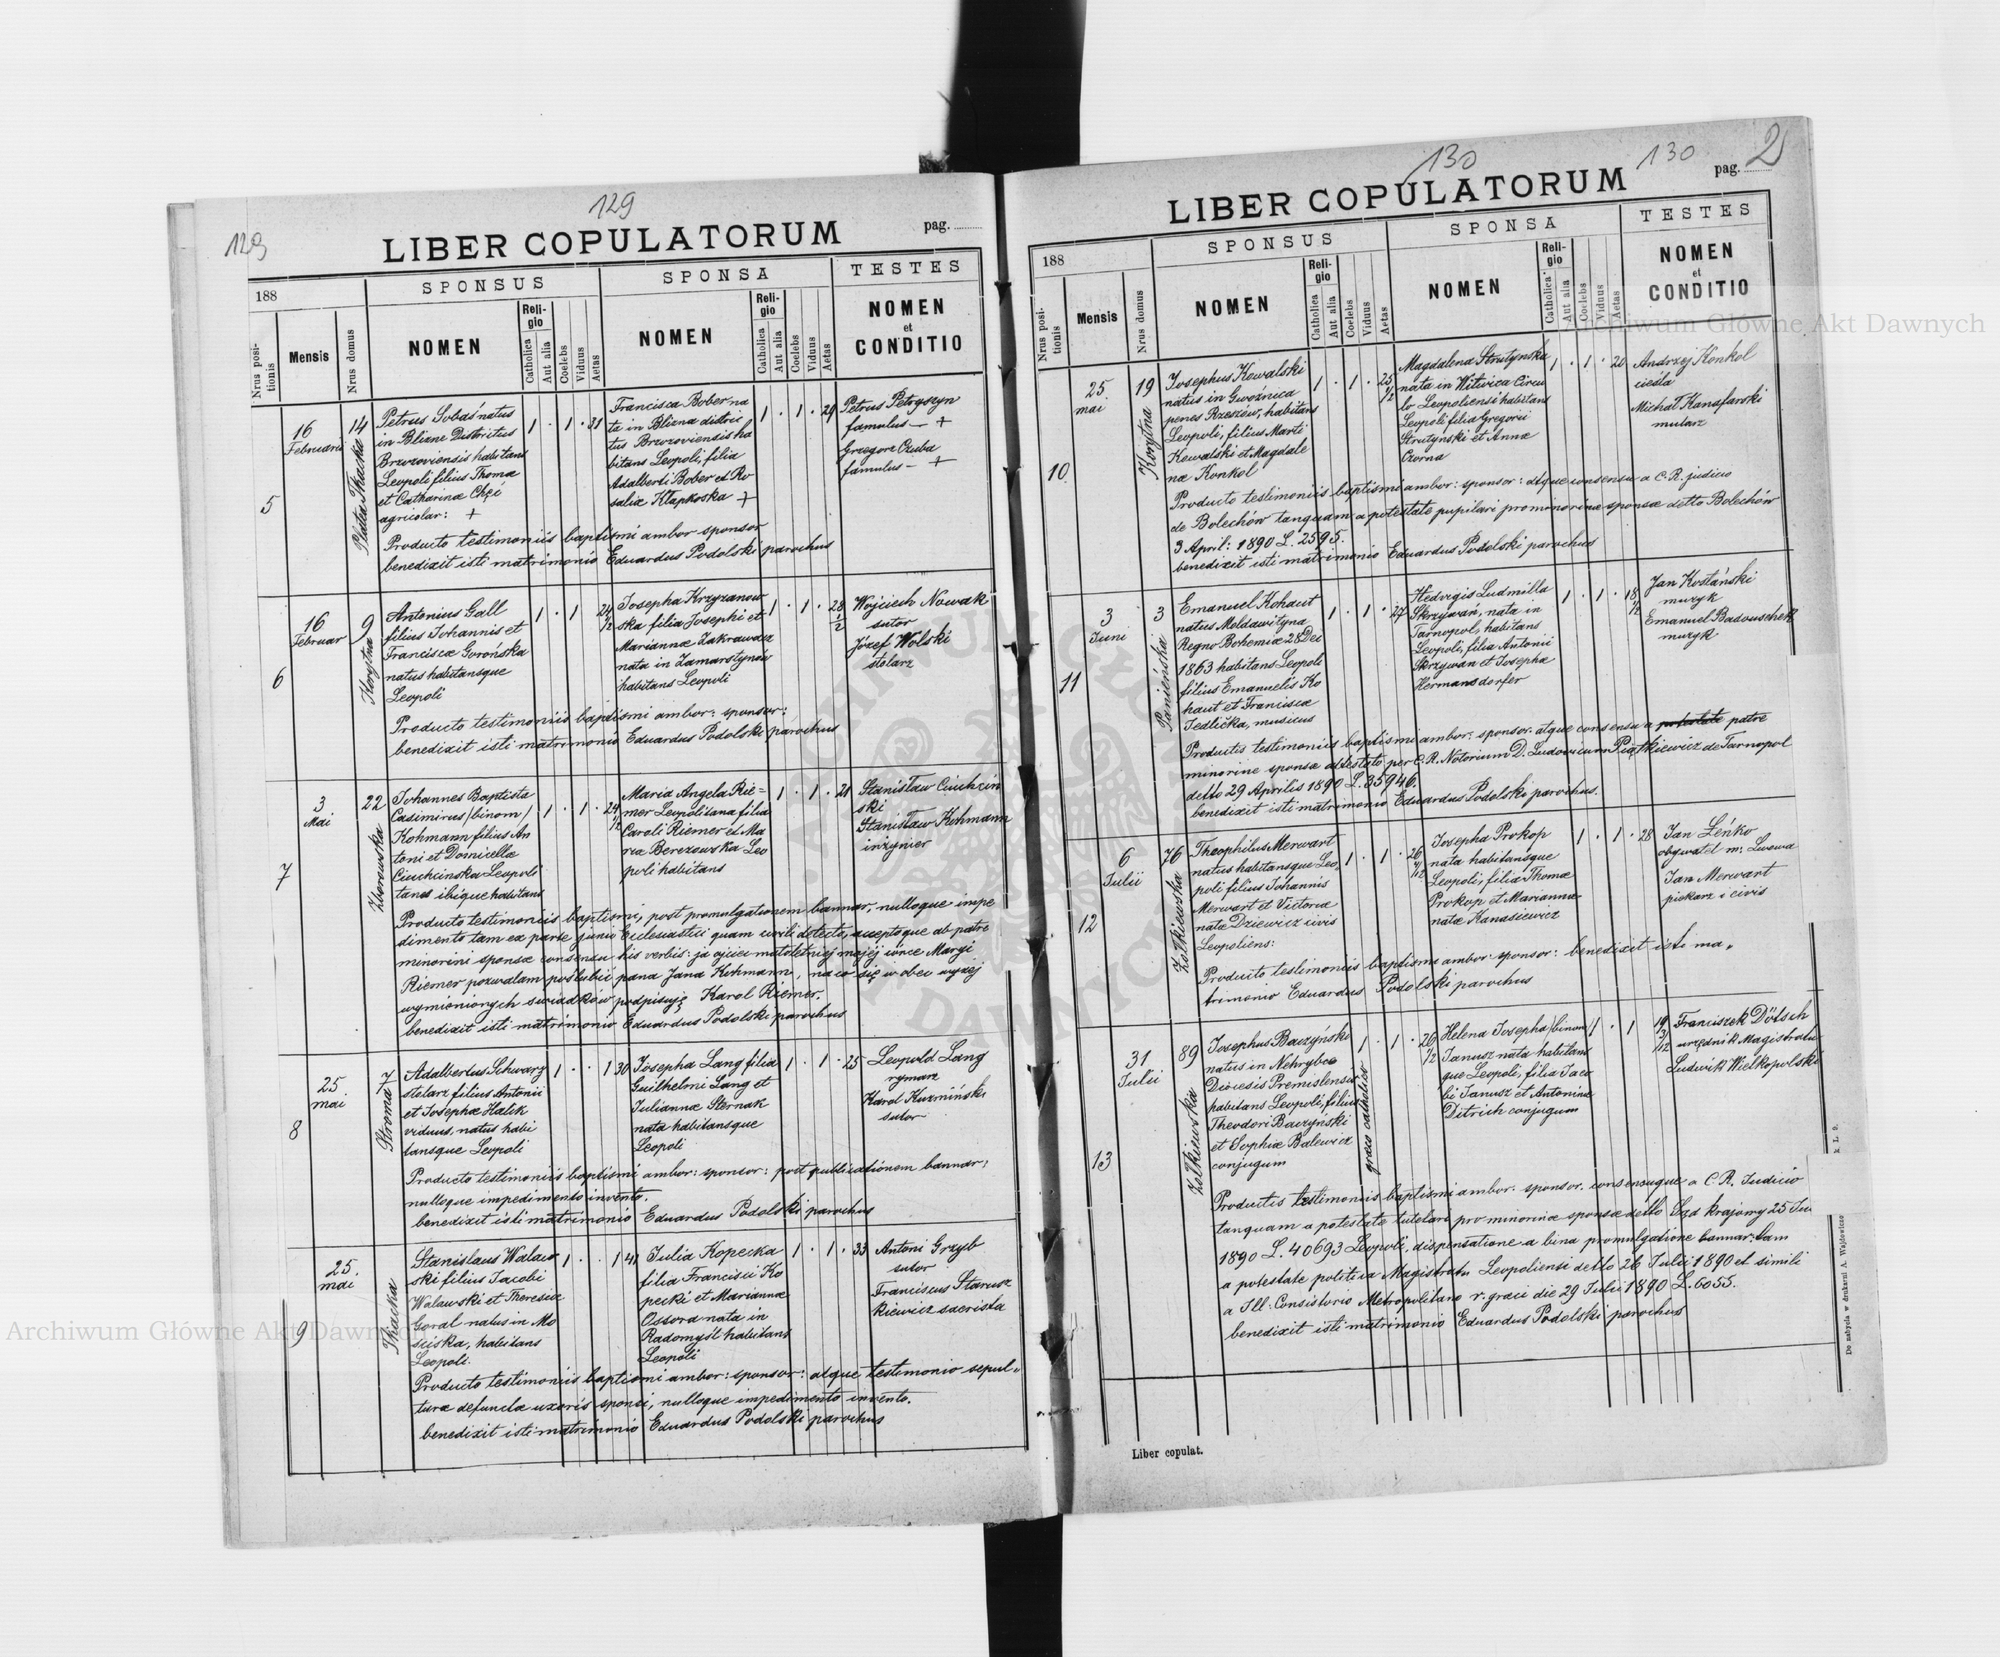 129
129
LIBER COPULATORUM
pag.
188
SPONSUS
SPONSA
TESTES
Nrus positionis
Mensis
Nrus domus
NOMEN
Religio
Catholica
Aut alia
Coelebs
Viduus
Aetas
NOMEN
Religio
Catholica
Aut alia
Coelebs
Viduus
Aetas
NOMEN
et
CONDITIO
5
16
Februarii
14
Platta Tkacka
Petrus Sobaś natus
in Blizne Districtus
Brzozoviensis habitans
Leopoli filius Thomæ
et Catharinæ Chęć
agricolar: +
1 · 1 · 31
Francisca Bober na
ta in Blizna distric
tus Brzozoviensis ha
bitans Leopoli, filia
Adalberti Bober et Ro
saliæ Kłapkoska +
1 · 1 · 29
Petrus Petryszyn
famulus — +
Grzegorz Czuba
famulus — +
Producto testimoniis baptismi ambor sponsor
benedixit isti matrimonio Eduardus Podolski parochus
6
16
Februar
9
Korytna
Antonius Gall
filius Johannis et
Franciscæ Gorońska
natus habitansque
Leopoli
1 · 1 24 1/2
Josepha Krzyzanow
ska filia Josephi et
Mariannæ Zakrawacz
nata in Zamarstynów
habitans Leopoli
1 · 1 · 28 1/2
Wojciech Nowak
sutor
Józef Wolski
stolarz
Producto testimoniis baptismi ambor: sponsor:
benedixit isti matrimonio Eduardus Podolski parochus
7
3
Mai
22
Zborowska
Johannes Baptista
Casimirus /binom/
Kohmann filius An
toni et Domicellæ
Ciuchcinska Leopoli
tanus ibique habitans
1 · 1 · 24 1/2
Maria Angela Rie=
mer Leopolitana filia
Caroli Riemer et Ma
riæ Berezowska Leo
poli habitans
1 · 1 · 21
Stanisław Ciuchcin
ski
Stanisław Kohmann
inżynier
Producto testimoniis baptismi, post promulgationem bannor, nulloque impe
dimento tam ex parte juris Ecclesiastici quam civili detecto, acceptoque ab patre
minorini sponsæ consensu his verbis: ja ojciec małoletniej mojej córce Maryi
Riemer pozwalam poślubić pana Jana Kohmann, na co się w obec wyżej
wymienionych swiadków podpisuję Karol Riemer.
benedixit isti matrimonio Eduardus Podolski parochus
8
25
mai
7
Stroma
Adalbertus Schwarz
stolarz filius Antonii
et Josephæ Hatik
viduus, natus habi
tansque Leopoli
1 · · 1 30
Josepha Lang filia
Guilhelmi Lang et
Juliannæ Sternak
nata habitansque
Leopoli
1 · 1 · 25
Leopold Lang
rymarz
Karol Kuzmiński
sutor
Producto testimoniis baptismi ambor: sponsor: post publicationem bannor:
nulloque impedimento invento.
benedixit isti matrimonio Eduardus Podolski parochus
9
25
mai
Tkacka
Stanislaus Walaw
ski filius Jacobi
Walawski et Theresiæ
Goral natus in Mo
sciska, habitans
Leopoli.
1 · · 1 41
Julia Kopecka
filia Francisci Ko
pecki et Mariannæ
Ossora nata in
Radomyśl habitans
Leopoli
1 · 1 · 33
Antoni Grzyb
sutor
Franciscus Starusz
kiewicz sacrista
Producto testimoniis baptismi ambor: sponsor: atque testimonio sepul=
turæ defunctæ uxoris sponsi, nulloque impedimento invento.
benedixit isti matrimonio Eduardus Podolski parochus
130
130
pag. 2
LIBER COPULATORUM
188
SPONSUS
SPONSA
TESTES
Nrus positionis
Mensis
Nrus domus
NOMEN
Religio
Catholica
Aut alia
Coelebs
Viduus
Aetas
NOMEN
Religio
Catholica
Aut alia
Coelebs
Viduus
Aetas
NOMEN
et
CONDITIO
10
25
mai
19
Korytna
Josephus Kowalski
natus in Gwoźnica
penes Rzeszów, habitans
Leopoli, filius Marti
Kowalski et Magdale
næ Konkol
1 · 1 · 25 1/2
Magdalena Strutynska
nata in Witwica Circu
lo Leopoliensi habitans
Leopoli filia Gregorii
Strutynski et Annæ
Czorna
1 · 1 · 20
Andrzej Konkol
ciesla
Michał Kansfarski
mularz
Producto testimoniis baptismi ambor: sponsor: atque consensu a C. R. judicio
de Bolechów tanquam a potestate pupilari pro minorinæ sponsæ detto Bolechów
3 April: 1890 L. 2595.
benedixit isti matrimonio Eduardus Podolski parochus
11
3
Juni
3
Panieńska
Emanuel Kohaut
natus Moldawityna
Regno Bohemiæ 28 Dec
1863 habitans Leopoli
filius Emanuelis Ko
haut et Franciscæ
Jedlička, musicus
1 · 1 · 27
Hedvigis Ludmilla
Skrzywan, nata in
Tarnopol, habitans
Leopoli, filia Antonii
Skrzywan et Josepha
Hermansdorfer
1 · 1 · 18 1/2
Jan Kostański
muzyk
Emanuel Badouschek
muzyk
Productis testimoniis baptismi ambor: sponsor. atque consensu a potestate patre
minorine sponsæ attestato per C. R. Notorium D. Ludovicum Piątkiewicz de Tarnopol
detto 29 Aprilis 1890 L. 35946.
benedixit isti matrimonio Eduardus Podolski parochus.
12
6
Julii
76
Zołkiewska
Theophilus Merwart
natus habitansque Leo=
poli filius Johannis
Merwart et Victoriæ
nata Dziewicz civis
Leopoliens:
1 · 1 · 26 4/12
Josepha Prokop
nata habitansque
Leopoli, filia Thomæ
Prokop et Mariannæ
natæ Kanasiewicz
1 · 1 · 28
Jan Leńko
obywatel m: Lwowa
Jan Merwart
piekarz i civis
Producto testimoniis baptismi ambor sponsor: benedixit isti ma=
trimonio Eduardus Podolski parochus
13
31
Julii
89
Zołkiewska
Josephus Baczyński
natus in Nehrybce
Diocesis Premislensis
habitans Leopoli, filius
Theodori Baczyński
et Sophiæ Balewicz
conjugum
1 · 1 · 26 1/2
græco catholico
Helena Josepha /binom/
Janusz nata habitans
que Leopoli, filia Jaco
bi Janusz et Antoninæ
Ditrich conjugum
1 · 1 19 3/12
Franciszek Dötsch
urzędnik Magistratu
Ludwik Wielkopolski
Productis testimoniis baptismi ambor: sponsor. consensuque a C. R. Judicio
tanquam a potestate tutelari pro minorinæ sponsæ detto Sąd krajowy 25 Ju
1890 L. 40693 Leopoli, dispensatione a bina promulgatione bannor. tam
a potestate politica Magistratu Leopoliensi detto 26 Julii 1890 et simili
a Ill. Consistorio Metropolitano r. graeci die 29 Julii 1890 L. 6055.
benedixit isti matrimonio Eduardus Podolski parochus
Liber copulat.
De nabycia w drukarni A. Wajdowicza
Archiwum Główne Akt Dawnych
Archiwum Główne Akt Dawnych